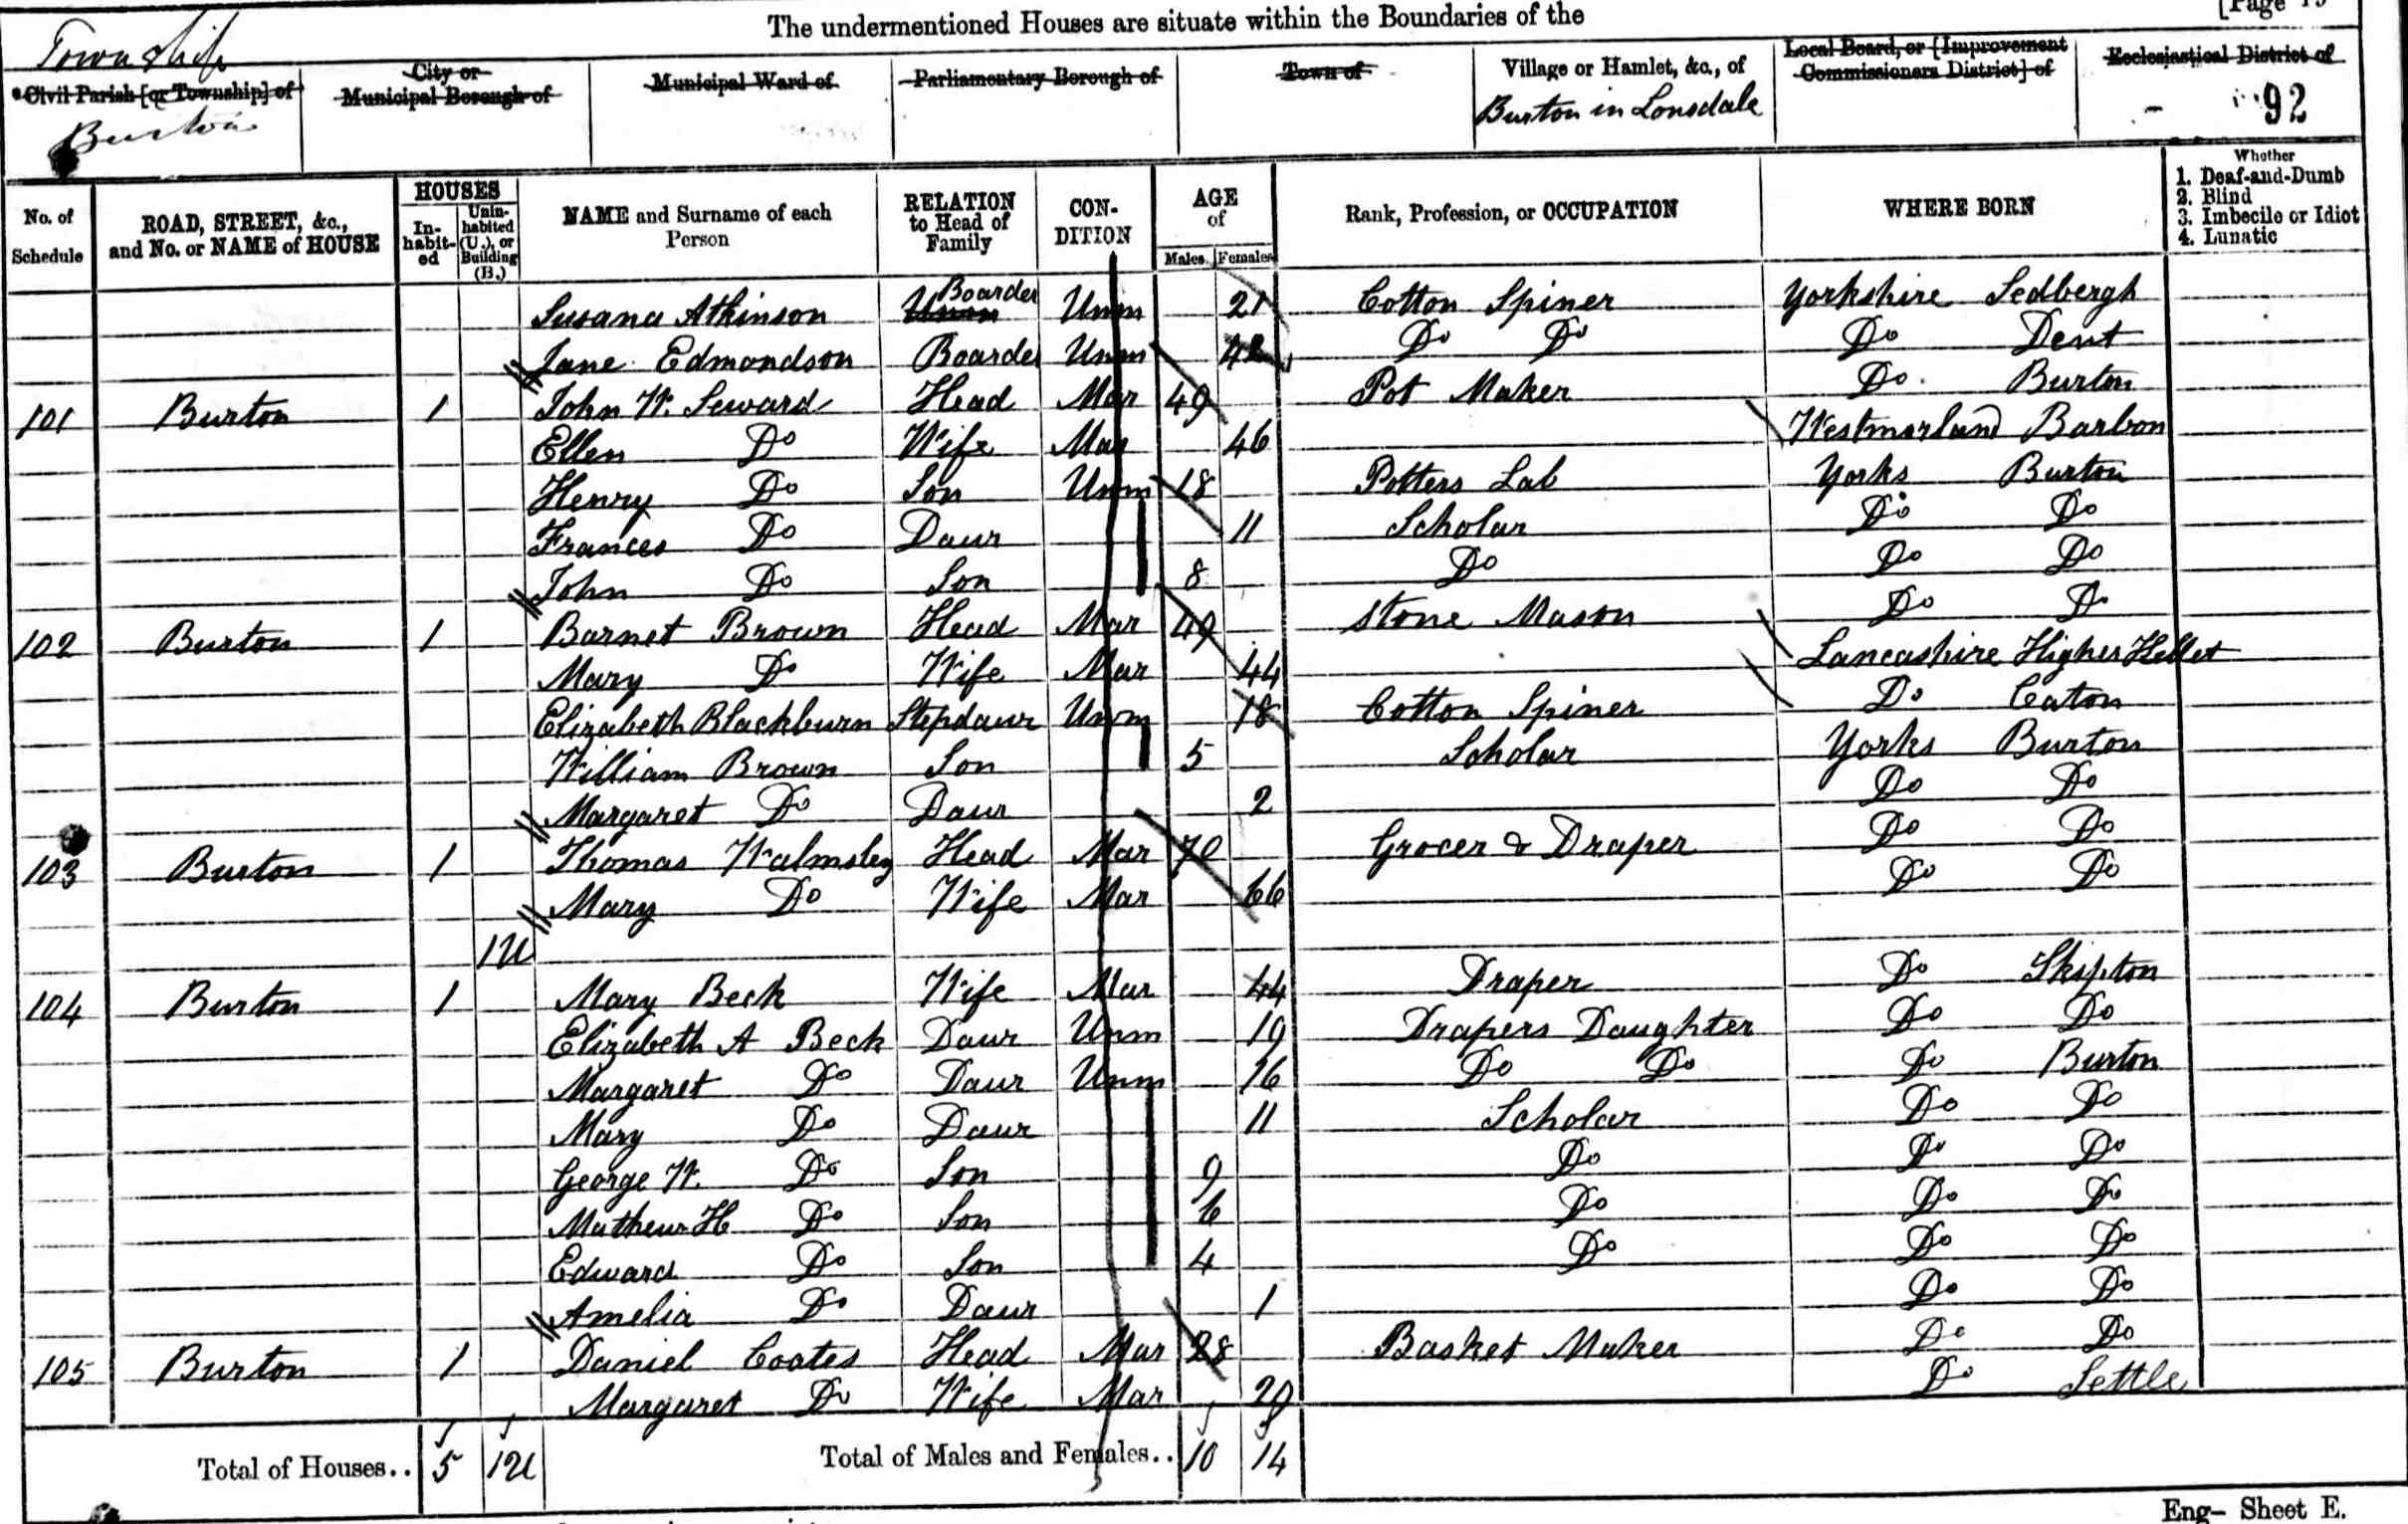 The undermentioned Houses are situate within the Boundaries of the
[Page
Township
Civil Parish [or Township] of
City or Municipal Borough of
Municipal Ward of
Parliamentary Borough of
Town of
Village or Hamlet, &c., of
Local Board, or [Improvement Commissioners District] of
Ecclesiastical District of
Burton
Burton in Lonsdale
92
No. of Schedule
ROAD, STREET, &c., and No. or NAME of HOUSE
HOUSES
In-habit-ed
Unin-habited (U.), or Building (B.)
NAME and Surname of each Person
RELATION to Head of Family
CON-DITION
AGE of
Males
Females
Rank, Profession, or OCCUPATION
WHERE BORN
Whether
1. Deaf-and-Dumb
2. Blind
3. Imbecile or Idiot
4. Lunatic
Susana Atkinson Boarder Unm 21 Cotton Spiner Yorkshire Sedbergh
Jane Edmondson Boarder Unm 42 Do Do Do Dent
101 Burton 1 John W. Seward Head Mar 49 Pot Maker Do Burton
Ellen Do Wife Mar 46 Westmorland Barbon
Henry Do Son Unm 18 Potters Lab Yorks Burton
Frances Do Daur 11 Scholar Do Do
John Do Son 8 Do Do Do
102 Burton 1 Barnet Brown Head Mar 49 Stone Mason Do Do
Mary Do Wife Mar 44 Lancashire Higher
Elizabeth Blackburn Stepdaur Unm 18 Cotton Spiner Do Caton
William Brown Son 5 Scholar Yorks Burton
Margaret Do Daur 2 Do Do
103 Burton 1 Thomas Walmsley Head Mar 70 Grocer & Draper Do Do
Mary Do Wife Mar 66 Do Do
1U
104 Burton 1 Mary Beck Wife Mar 44 Draper Do Skipton
Elizabeth A Beck Daur Unm 19 Drapers Daughter Do Do
Margaret Do Daur Unm 16 Do Do Do Burton
Mary Do Daur 11 Scholar Do Do
George W. Do Son 9 Do Do Do
Mathew H Do Son 6 Do Do Do
Edward Do Son 4 Do Do Do
Amelia Do Daur 1 Do Do
105 Burton 1 Daniel Coates Head Mar 28 Basket Maker Do Do
Margaret Do Wife Mar 29 Do Settle
Total of Houses.. 5 1U Total of Males and Females.. 10 14
Eng- Sheet E.